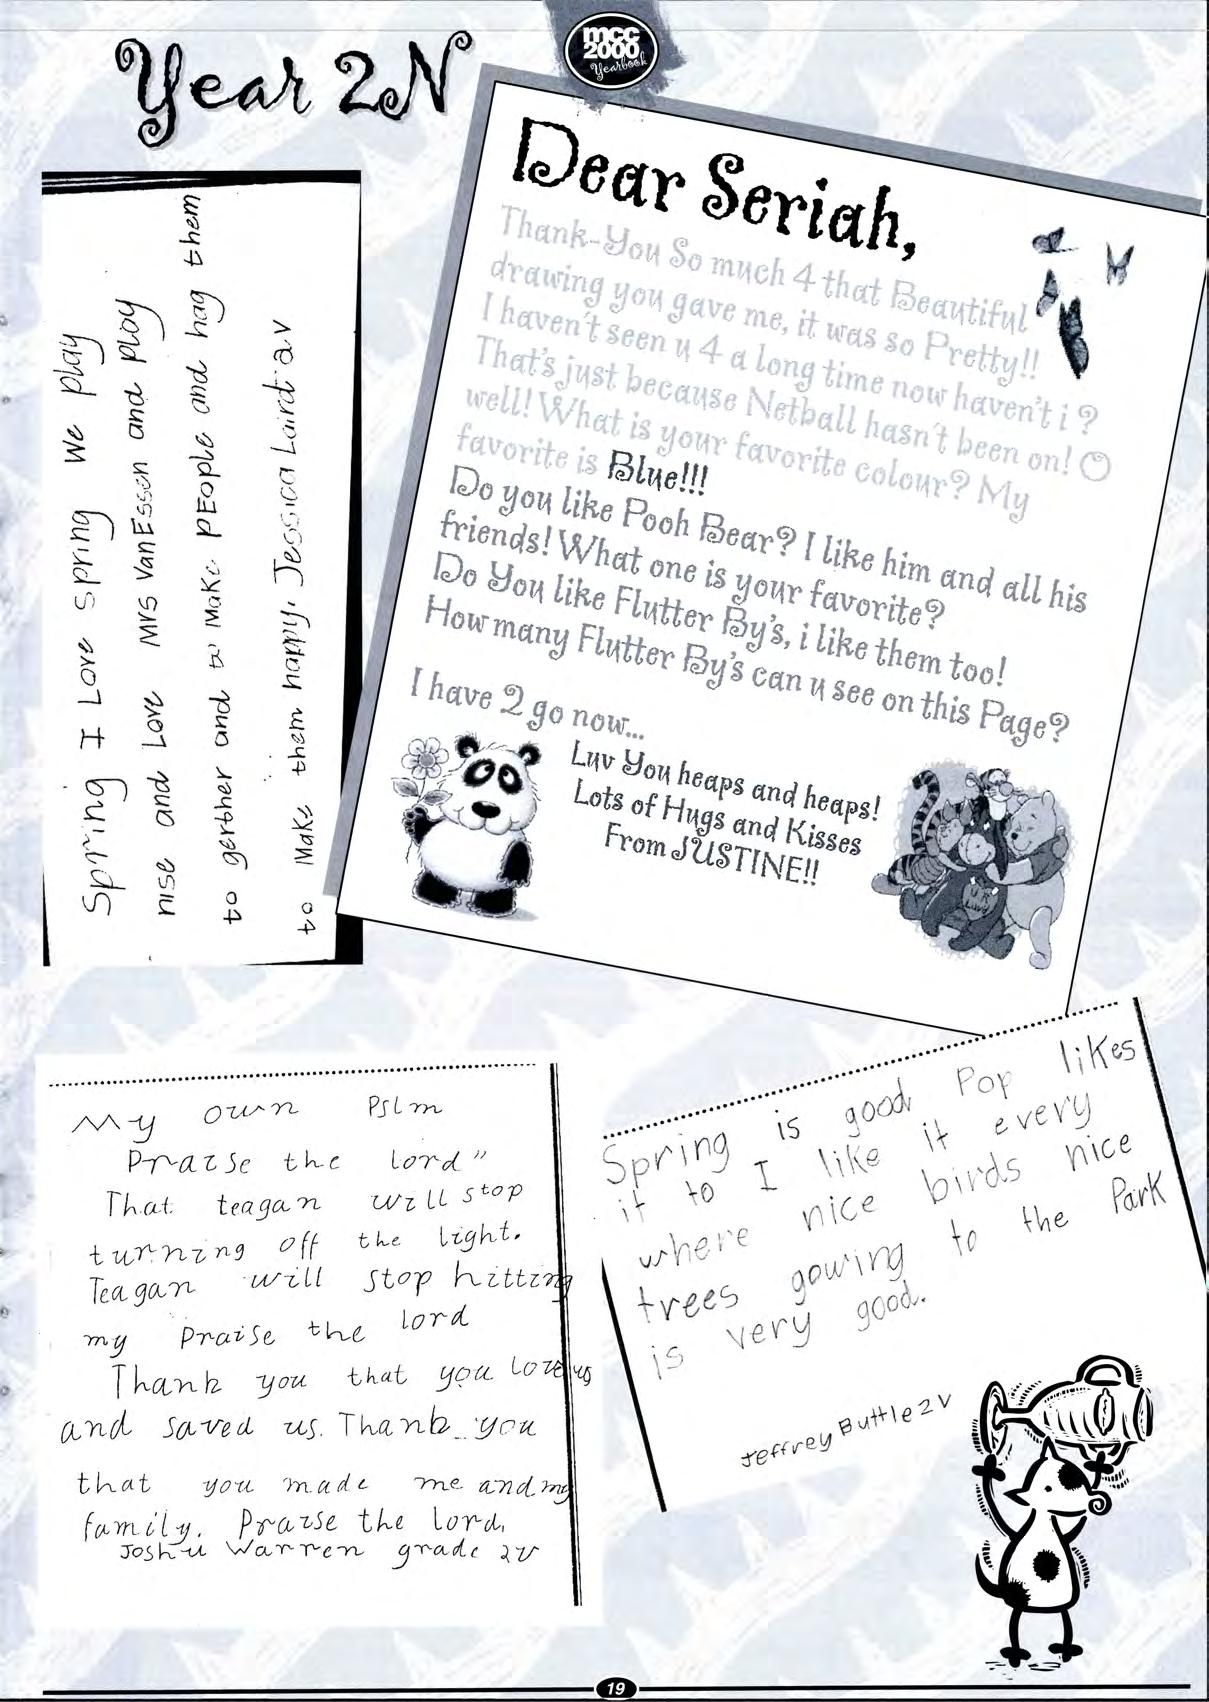 Year 2N
mcc
2000
Yearbook
Dear Seriah,
Thank-You So much 4 that Beautiful
drawing you gave me, it was so Pretty!!
I haven't seen u 4 a long time now haven't i ?
That's just because Netball hasn't been on! O
well! What is your favorite colour? My
favorite is Blue!!!
Do you like Pooh Bear? I like him and all his
friends! What one is your favorite?
Do You like Flutter By's, i like them too!
How many Flutter By's can u see on this Page?
I have 2 go now...
Luv You heaps and heaps!
Lots of Hugs and Kisses
From JUSTINE!!
Spring I Love spring we play
nise and Love Mrs VanEssen and play
to gerther and to Make PEople and hag them
to Make them happy. Jessica Laird 2v
My own Pslm
Praise the lord"
That teagan will stop
turning off the light.
Teagan will stop hitting
my Praise the lord
Thank you that you love us
and saved us. Thank you
that you made me and my
family. Praise the lord.
Joshu Warren grade 2v
Spring is good Pop likes
it to I like it every
where nice birds nice
trees gowing to the Park
is very good.
Jeffrey Buttle 2V
19